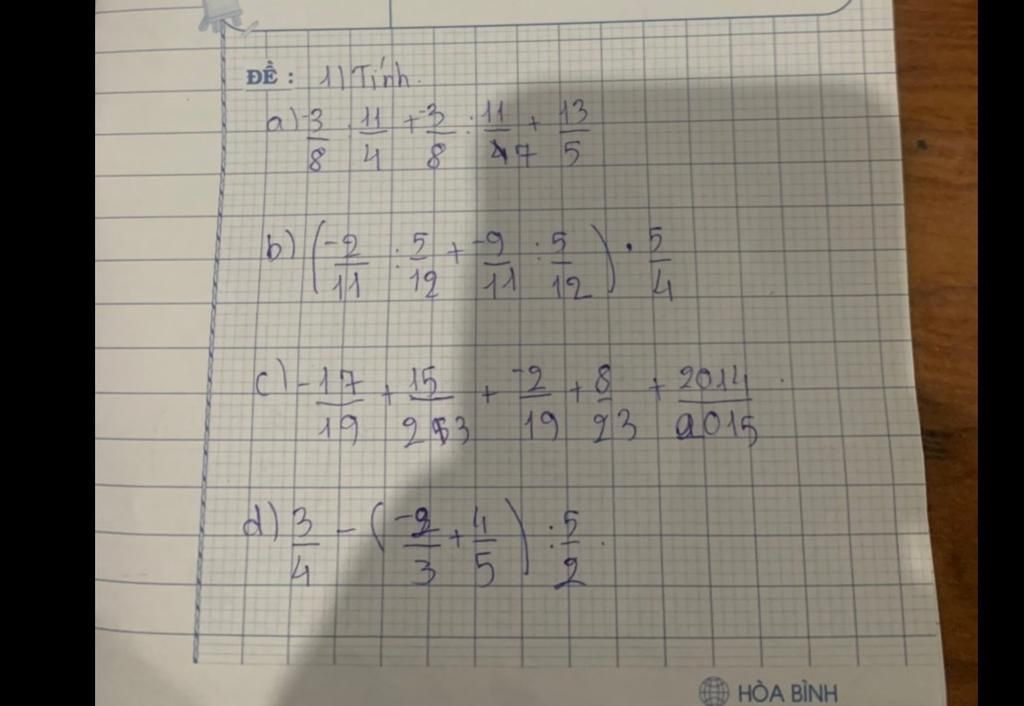 ĐỀ : 1) Tính.
a) -3/8 . 11/4 + -3/8 : 11/7 + 13/5
b) (-2/11 : 5/12 + -9/11 : 5/12) . 5/4
c) -17/19 + 15/23 + -2/19 + 8/23 + 2014/2015
d) 3/4 - (-2/3 + 4/5) : 5/2.
HÒA BÌNH